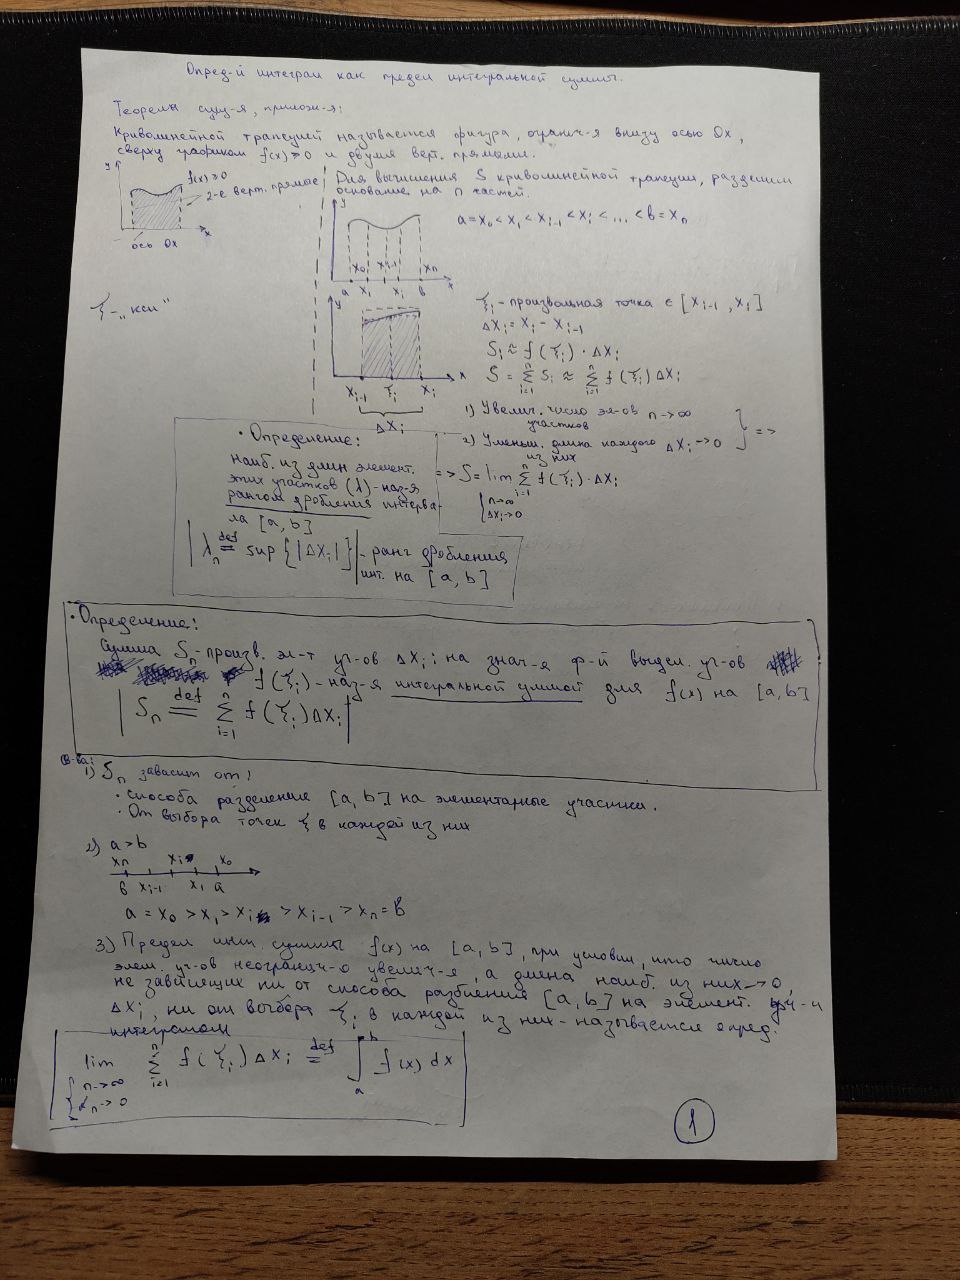 Опред-й интеграл как предел интегральной суммы.
Теоремы сущ-я, прилож-я:
Криволинейной трапецией называется фигура, огранич-я внизу осью Ox,
сверху графиком f(x)≥0 и двумя верт. прямыми.
y
f(x)≥0
2-е верт. прямые
ось Ox
x
Для вычисления S криволинейной трапеции, разделим
основание на n частей.
a=x₀<x₁<xᵢ₋₁<xᵢ<...<b=xₙ
y
x₀ xᵢ₋₁ xₙ
a x₁ xᵢ b x
ξ-„кси"
y
xᵢ₋₁ ξᵢ xᵢ x
Δxᵢ
ξᵢ-произвольная точка ∈ [xᵢ₋₁, xᵢ]
Δxᵢ=xᵢ-xᵢ₋₁
Sᵢ≈f(ξᵢ)·Δxᵢ
S=∑ᵢ₌₁ⁿ Sᵢ ≈ ∑ᵢ₌₁ⁿ f(ξᵢ)Δxᵢ
1) Увелич. число эл-ов n->∞
участков
2) Уменьш. длина каждого Δxᵢ->0
из них
} =>
=> S=lim ∑ᵢ₌₁ⁿ f(ξᵢ)·Δxᵢ
{n->∞
Δxᵢ->0
• Определение:
наиб. из длин элемент.
этих участков (λ)-наз-я
рангом дробления интерва-
ла [a, b]
|λₙ def= sup{|Δxᵢ|}|-ранг дробления
инт. на [a, b]
• Определение:
Сумма Sₙ-произв. эл-т уч-ов Δxᵢ; на знач-я ф-й выдел. уч-ов
f(ξᵢ)-наз-я интегральной суммой для f(x) на [a, b]
|Sₙ def= ∑ᵢ₌₁ⁿ f(ξᵢ)Δxᵢ|
Св-ва:
1) Sₙ зависит от:
• способа разделение [a, b] на элементарные участки.
• От выбора точек ξ в каждой из них
2) a>b
xₙ xᵢ x₀
b xᵢ₋₁ x₁ a
a = x₀ > x₁ > xᵢ > xᵢ₋₁ > xₙ = b
3) Предел инт. суммы f(x) на [a, b], при условии, что число
элем. уч-ов неогранич-о увелич-я, а длина наиб. из них->0,
не зависящих ни от способа разбиения [a, b] на элемент. уч-и
Δxᵢ, ни от выбора ξᵢ в каждой из них-называется опред.
интегралом
lim ∑ᵢ₌₁ⁿ f(ξᵢ)Δxᵢ def= ∫ₐᵇ f(x)dx
{n->∞
λₙ->0
1